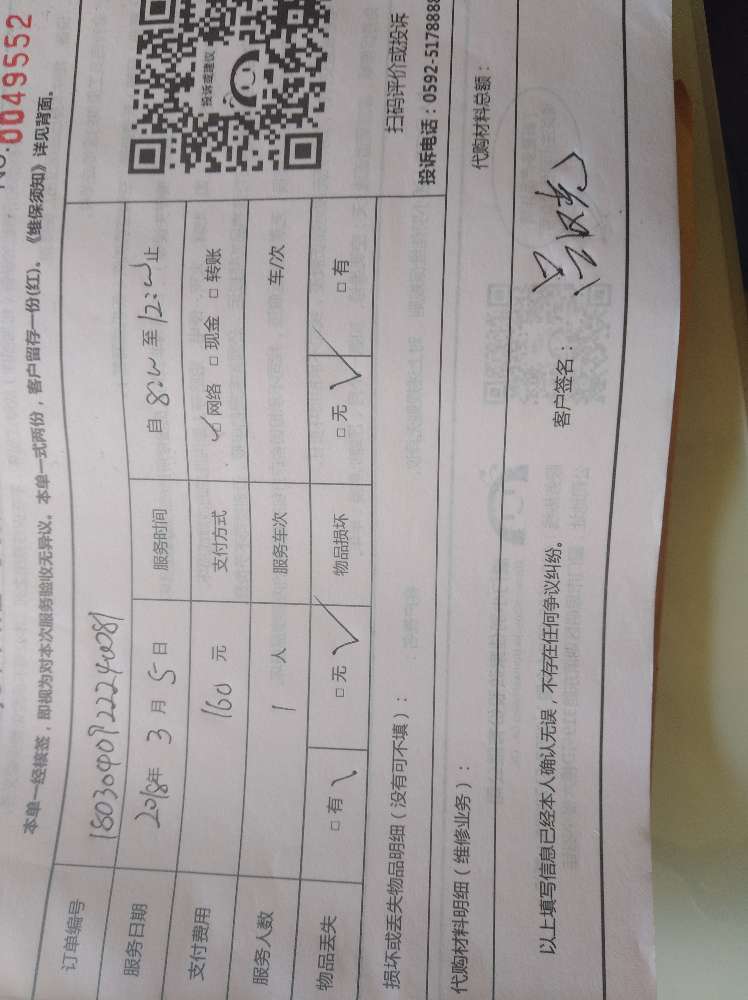 No.0049552
本单一经核签，即视为对本次服务验收无异议。本单一式两份，客户留存一份(红)。《维保须知》详见背面。
订单编号
服务日期 2018年 3 月 5 日 服务时间 自 8:00 至 12:00 止
支付费用 160 元 支付方式 □网络 □现金 □转账
服务人数 1 人 服务车次 车/次
物品丢失 □有 □无 物品损坏 □无 □有
投诉或建议
扫码评价或投诉
投诉电话：0592-5178888
损坏或丢失物品明细（没有可不填）：
代购材料明细（维修业务）： 代购材料总额：
以上填写信息已经本人确认无误，不存在任何争议纠纷。 客户签名：